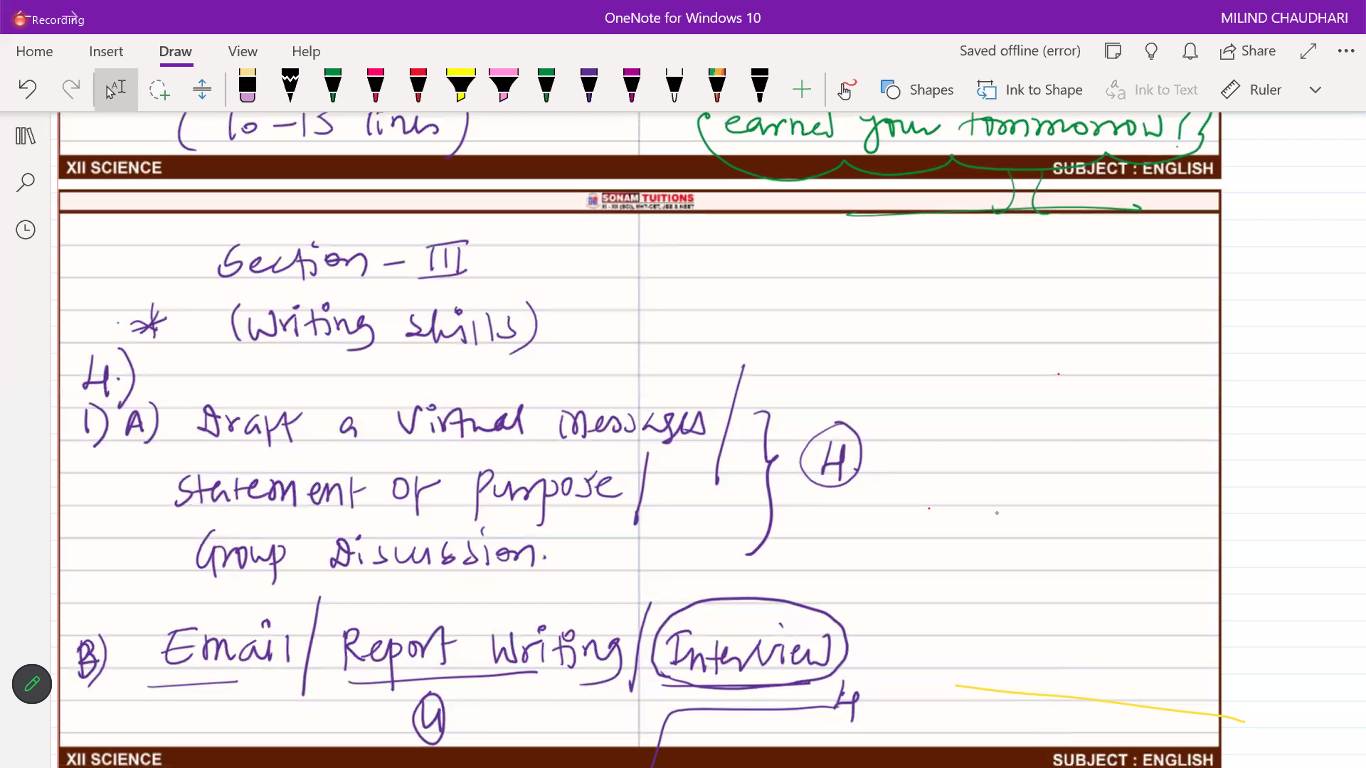 Recording
OneNote for Windows 10
MILIND CHAUDHARI
Home Insert Draw View Help
Saved offline (error)
Share
Shapes
Ink to Shape
Ink to Text
Ruler
(10-15 lines)
{earned your tommorrow!}
XII SCIENCE
SUBJECT : ENGLISH
SONAM TUITIONS
XI - XII (SCI), MHT-CET, JEE & NEET
Section - III
* (Writing skills)
4.)
1) A) Draft a Virtual messages /
Statement Of Purpose /
Group Discussion.
4
B) Email / Report Writing / Interview
4
4
XII SCIENCE
SUBJECT : ENGLISH